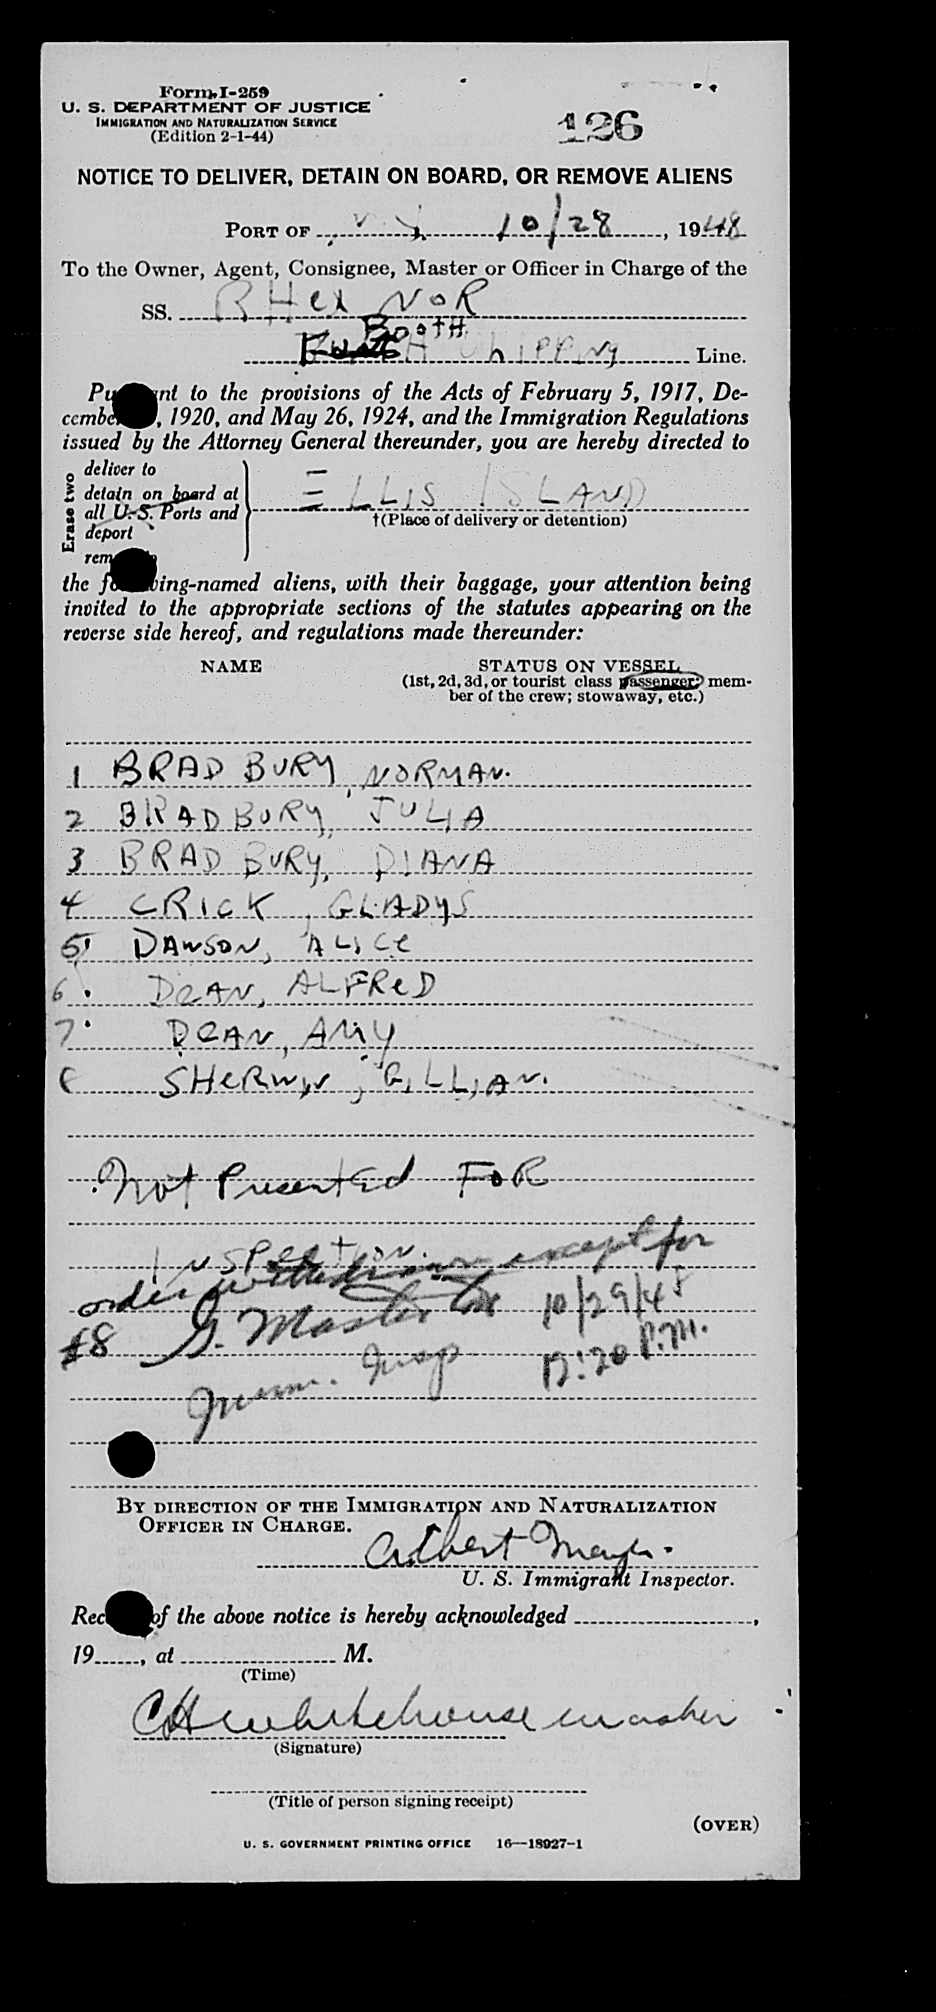 Form I-259
U. S. DEPARTMENT OF JUSTICE
IMMIGRATION AND NATURALIZATION SERVICE
(Edition 2-1-44)
126
NOTICE TO DELIVER, DETAIN ON BOARD, OR REMOVE ALIENS
PORT OF N.Y. 10/28, 1948
To the Owner, Agent, Consignee, Master or Officer in Charge of the
SS. RHexNOR
BOOTH
Shipping Line.
Pu nt to the provisions of the Acts of February 5, 1917, De-
cembe , 1920, and May 26, 1924, and the Immigration Regulations
issued by the Attorney General thereunder, you are hereby directed to
Erase two
deliver to
detain on board at
all U. S. Ports and
deport
rem
ELLIS ISLAND
†(Place of delivery or detention)
the fo wing-named aliens, with their baggage, your attention being
invited to the appropriate sections of the statutes appearing on the
reverse side hereof, and regulations made thereunder:
NAME
STATUS ON VESSEL
(1st, 2d, 3d, or tourist class passenger; mem-
ber of the crew; stowaway, etc.)
1 BRADBURY, NORMAN.
2 BRADBURY, JULIA
3 BRADBURY, DIANA
4 CRICK, GLADYS
5 DAWSON, ALICe
6. DeAN, ALFReD
7. DeAN, AMY
8 SHeRWIN, GILLIAN.
Not Presented FOR
INSPection.
order withdrawn except for
#8 G. Master 10/29/48
Imm. Insp 12:20 P.M.
BY DIRECTION OF THE IMMIGRATION AND NATURALIZATION
OFFICER IN CHARGE.
Albert Mayer.
U. S. Immigrant Inspector.
Rec of the above notice is hereby acknowledged ,
19 , at M.
(Time)
CH Whitehouse master
(Signature)
(Title of person signing receipt)
(OVER)
U. S. GOVERNMENT PRINTING OFFICE 16—18927-1